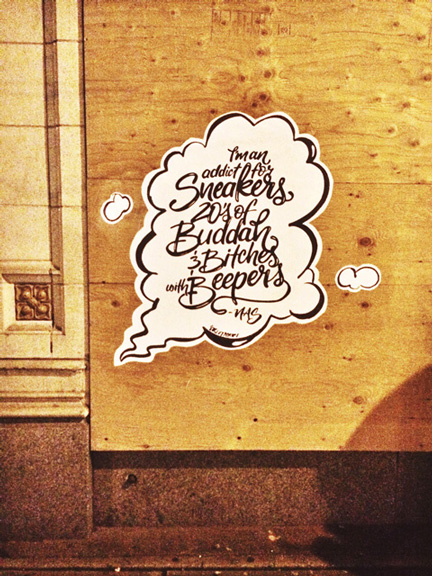 I'm an
addict for
Sneakers,
20's of
Buddah
& Bitches
with Beepers
- NAS